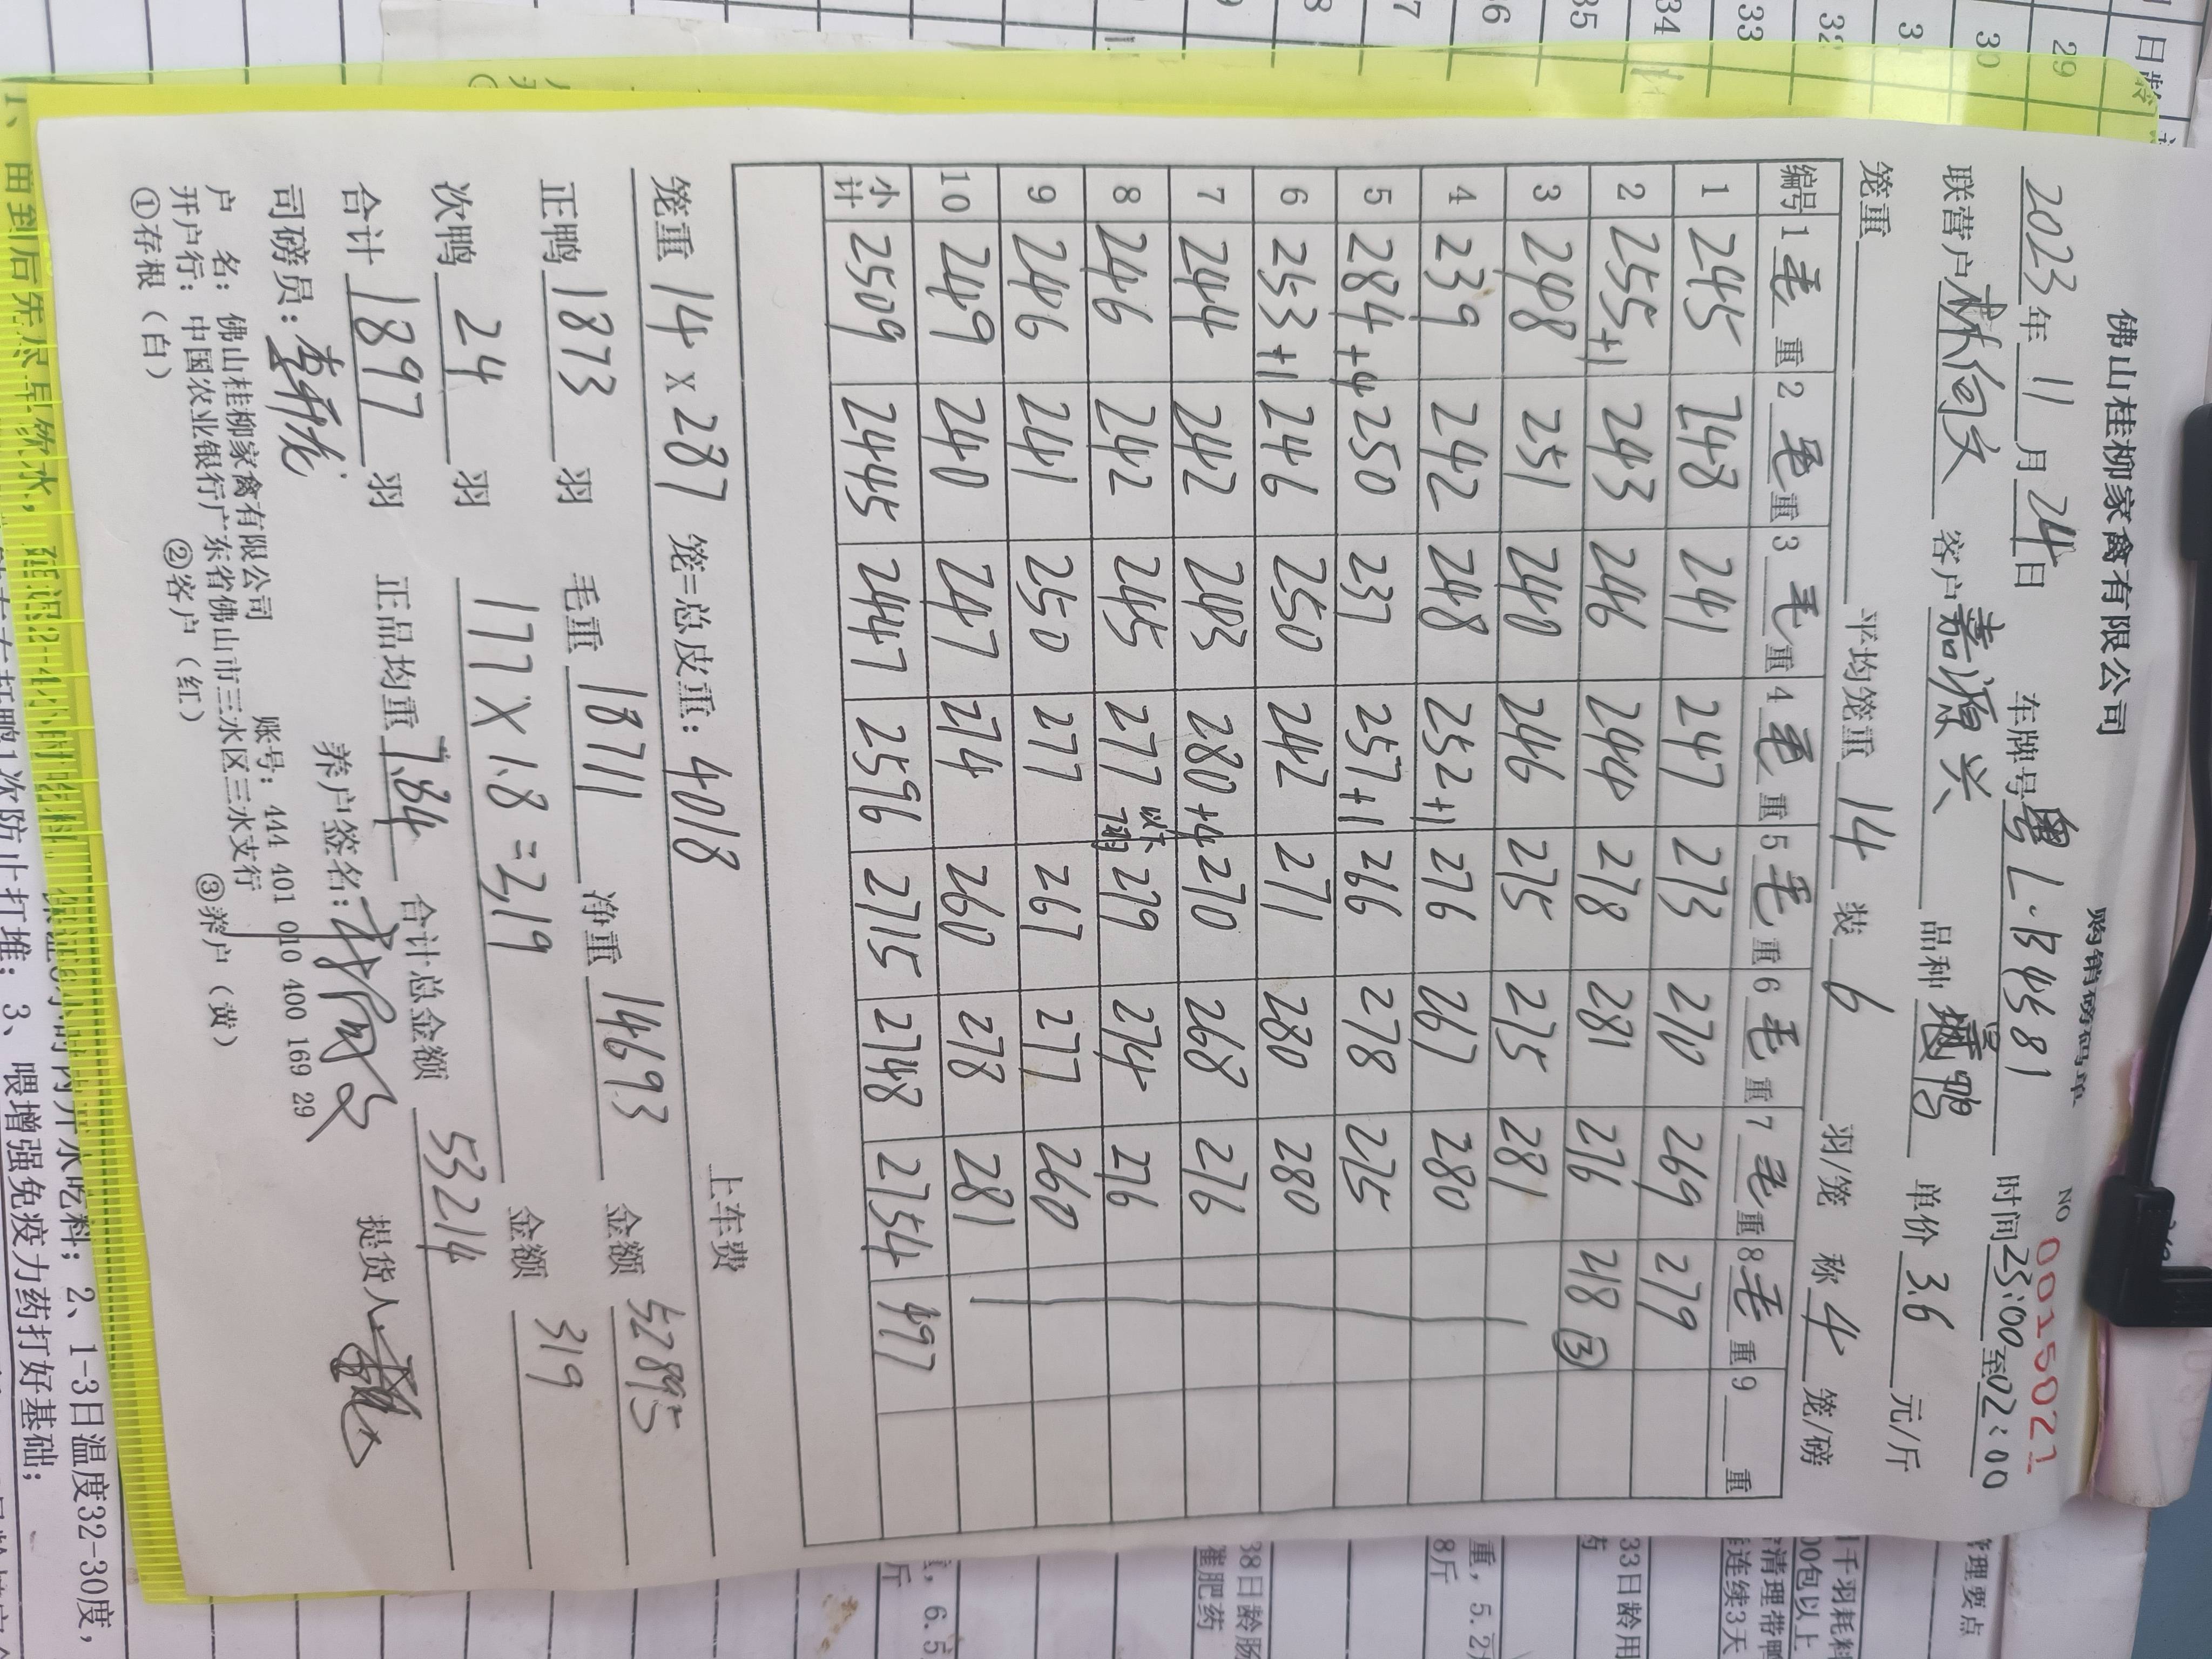 佛山桂柳家禽有限公司
购销磅码单
NO 0015021
2023年11月24日 车牌号粤L·B4581 时间23:00至02:00
联营户林伺文 客户嘉源兴 品种 鸭 单价3.6元/斤
笼重 平均笼重14 装6羽/笼 称4笼/磅
编号 1毛重 2毛重 3毛重 4毛重 5毛重 6毛重 7毛重 8毛重 9 重
1 245 248 241 247 273 270 269 279
2 255+1 243 246 244 278 281 276 218 ③
3 248 251 240 246 275 275 281
4 239 242 248 252+1 276 267 280
5 284+4 250 237 257+1 266 278 275
6 253+1 246 250 242 271 280 280
7 244 242 243 280+4 270 268 276
8 246 242 245 277 279 274 276
9 246 241 250 277 267 277 260
10 249 240 247 274 260 278 281
小计 2509 2445 2447 2596 2715 2748 2754 497
笼重14×287笼=总皮重:4018 上车费
正鸭1873羽 毛重18711 净重14693 金额52895
次鸭24羽 177×1.8=319 金额319
合计1897羽 正品均重7.84 合计总金额53214
司磅员: 养户签名: 提货人
户 名:佛山桂柳家禽有限公司 账号:444 401 010 400 169 29
开户行:中国农业银行广东省佛山市三水区三水支行
①存根(白) ②客户(红) ③养户(黄)
日龄
29
30
31
32
33
34
35
管理要点
千羽耗料
00包以上
清理带鸭
连续3天
33日龄用
重,5.2
8斤
38日龄肠
催肥药
,6.5
斤
2、1-3日温度32-30度,
3、喂增强免疫力药打好基础;